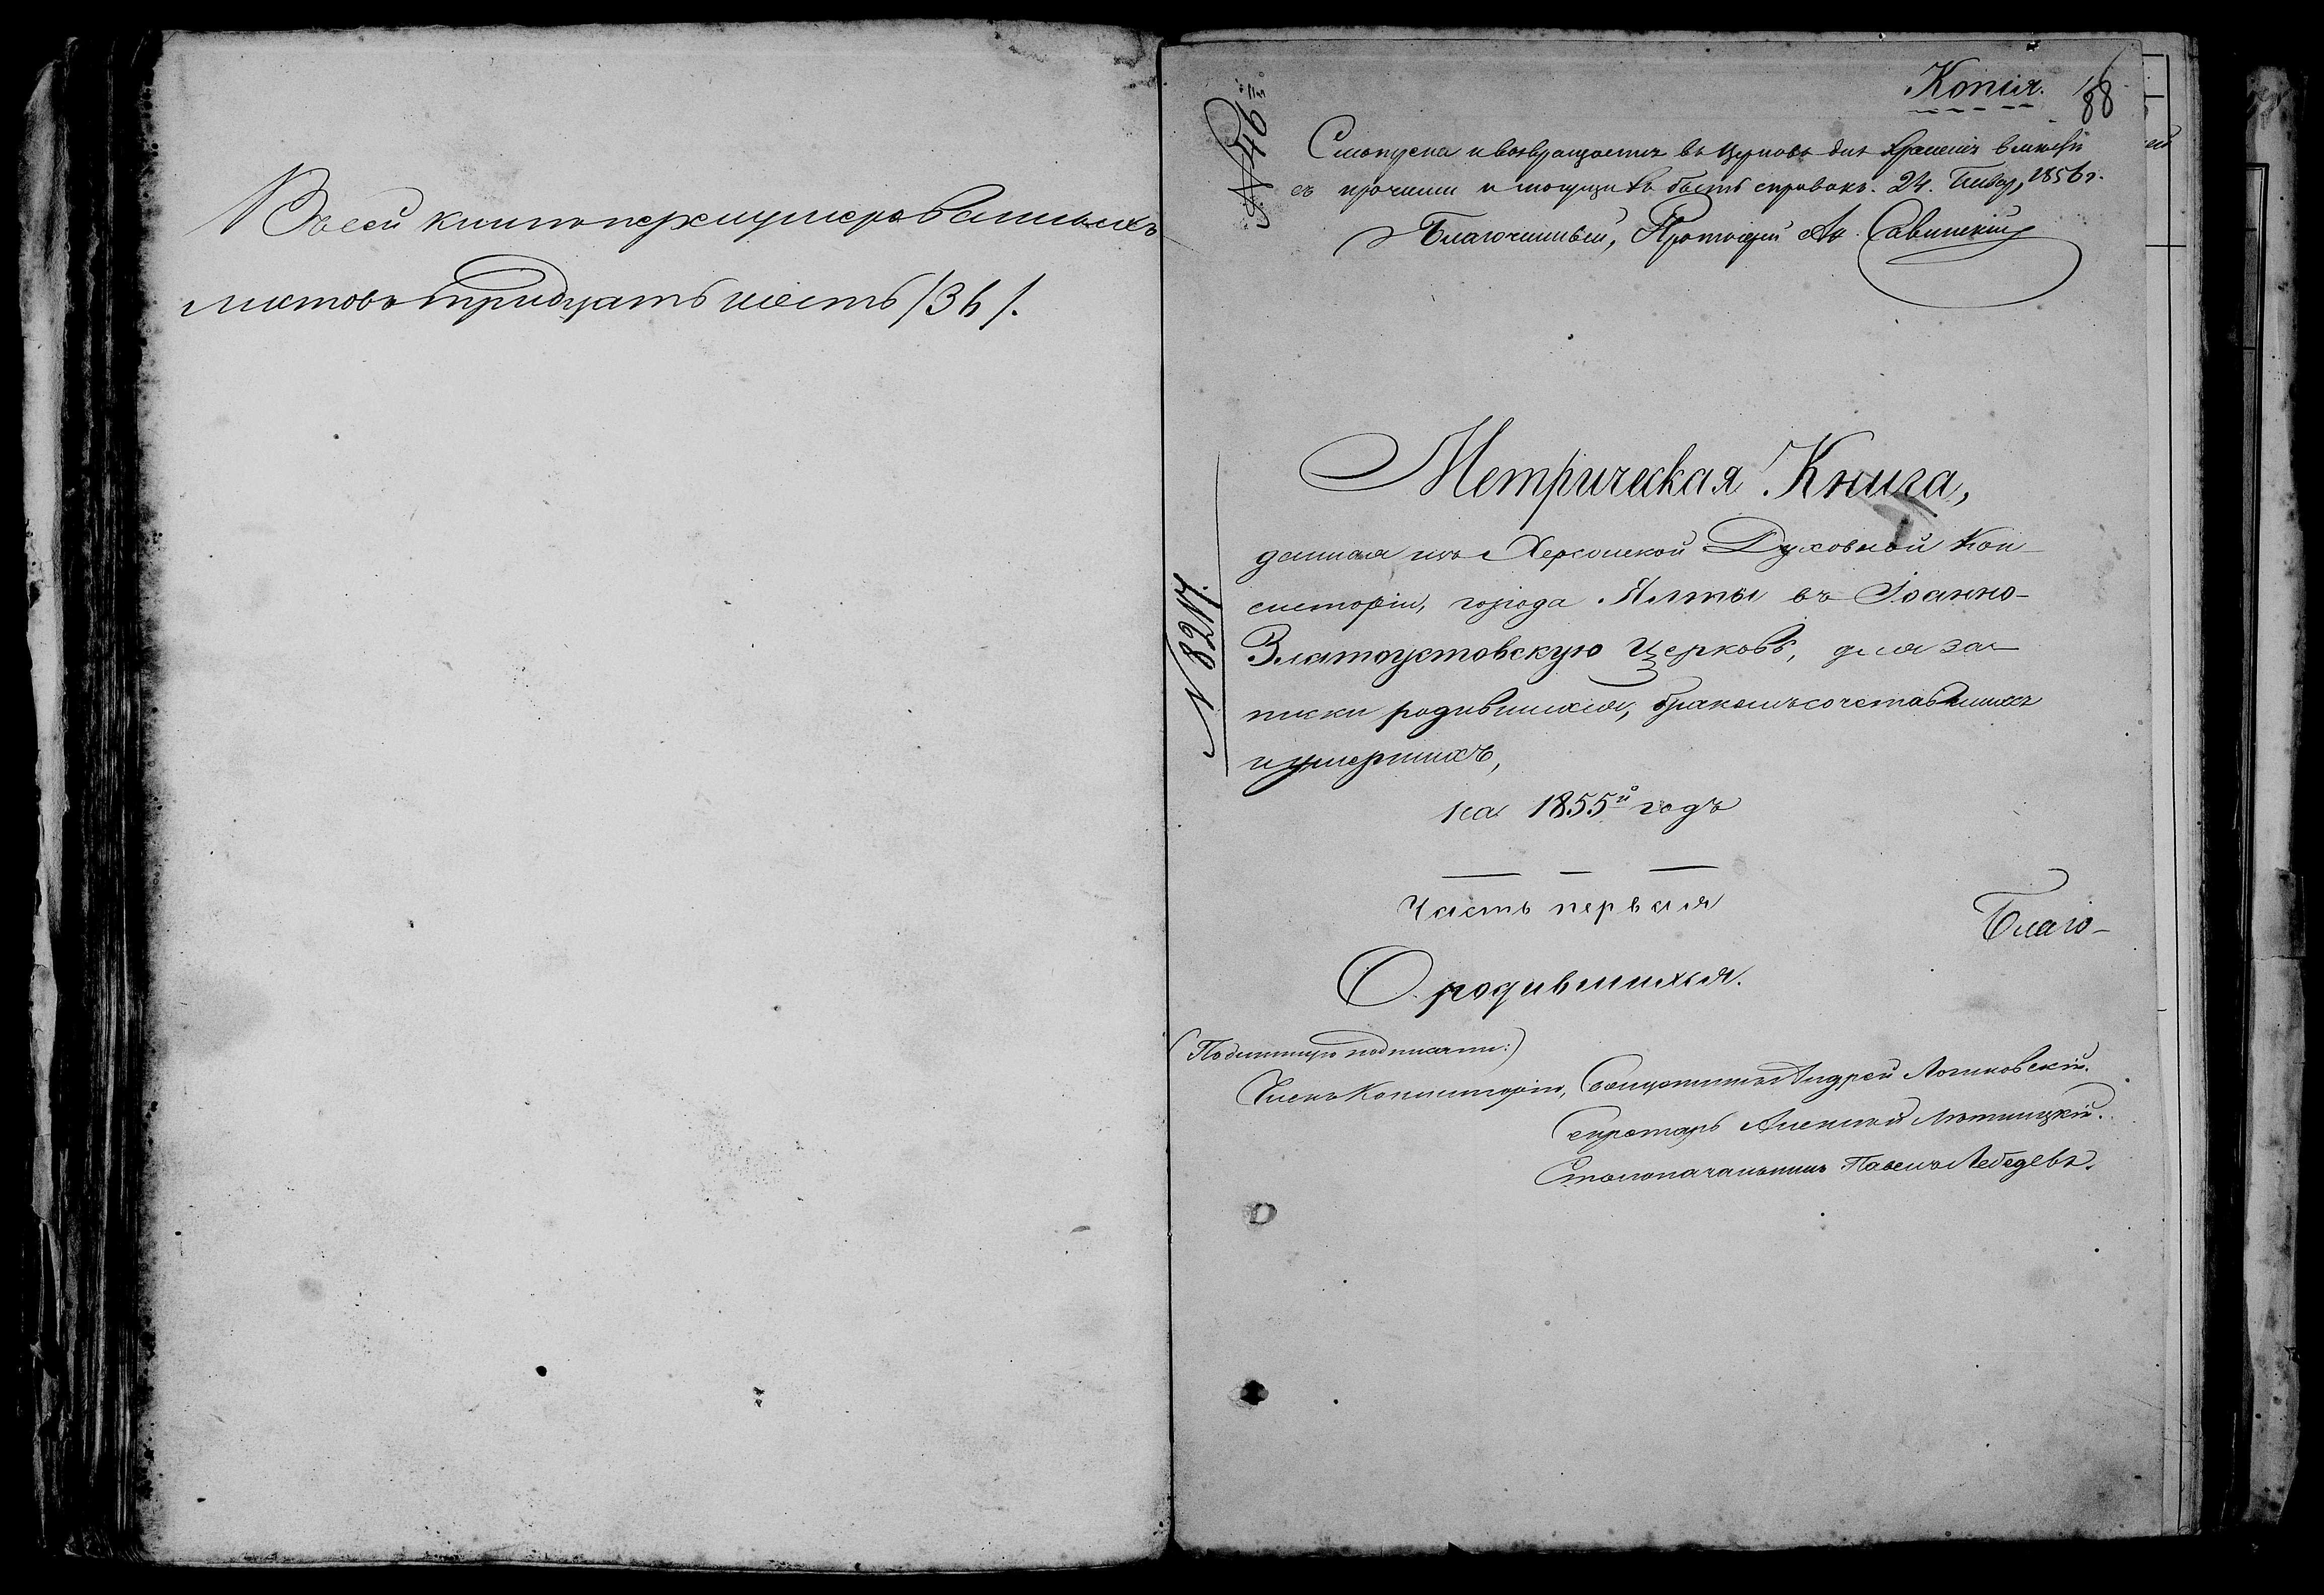 Въ сей книгѣ перенумерованныхъ
листовъ тридцать шесть /36/.
Копія.
88
№ 46й
Смотрена и возвращается въ Церковь для храненія вмѣстѣ
съ прочими и могущихъ быть справокъ. 24. Январ, 1856 г.
Благочинный, Протоіерей Савинскій
№ 8217.
Метрическая Книга,
данная изъ Херсонской Духовной Кон-
систоріи, города Ялты въ Іоанно-
Златоустовскую Церковь, для за-
писки родившихся, бракомъ сочетавшихся
и умершихъ,
на 1855й годъ
Часть первая
Благо-
О родившихся.
(Подлинную подписали:)
Членъ Консисторіи, Священникъ Андрей Логиновскій.
Секретарь Алексѣй Лѣтницкій.
Столоначальникъ Павелъ Лебедевъ.